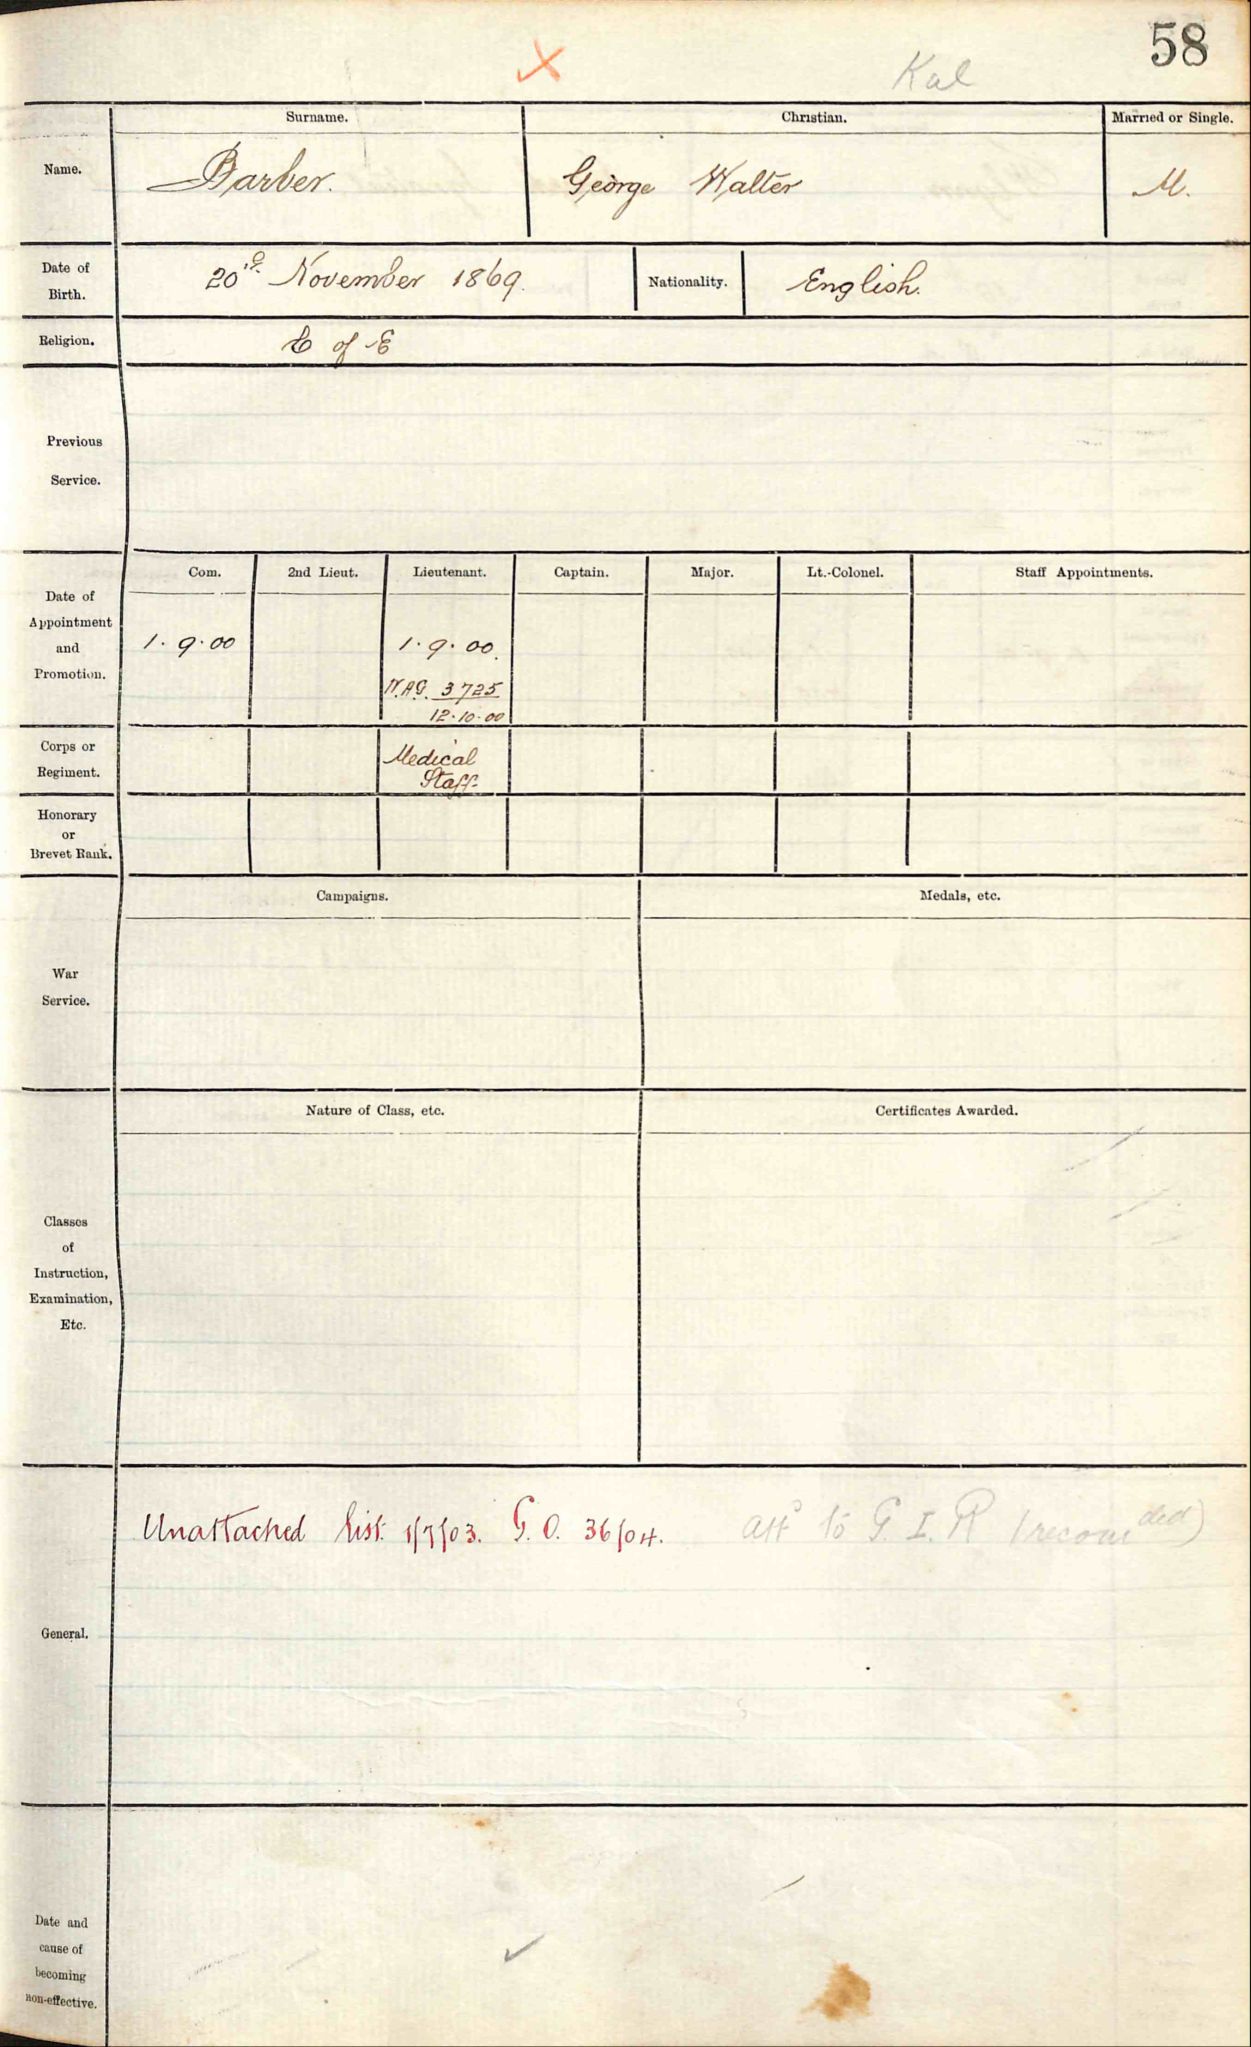 58
Kal
Surname. Christian. Married or Single.
Name. Barber. George Walter M.
Date of Birth. 20th November 1869. Nationality. English.
Religion. C of E
Previous Service.
Com. 2nd Lieut. Lieutenant. Captain. Major. Lt.-Colonel. Staff Appointments.
Date of Appointment and Promotion. 1.9.00 1.9.00.
W.A.G. 3725
12.10.00
Corps or Regiment. Medical Staff.
Honorary or Brevet Rank.
Campaigns. Medals, etc.
War Service.
Nature of Class, etc. Certificates Awarded.
Classes of Instruction, Examination, Etc.
Unattached list. 1/7/03. G.O. 36/04. att to G.I.R (recomded)
General.
Date and cause of becoming non-effective.